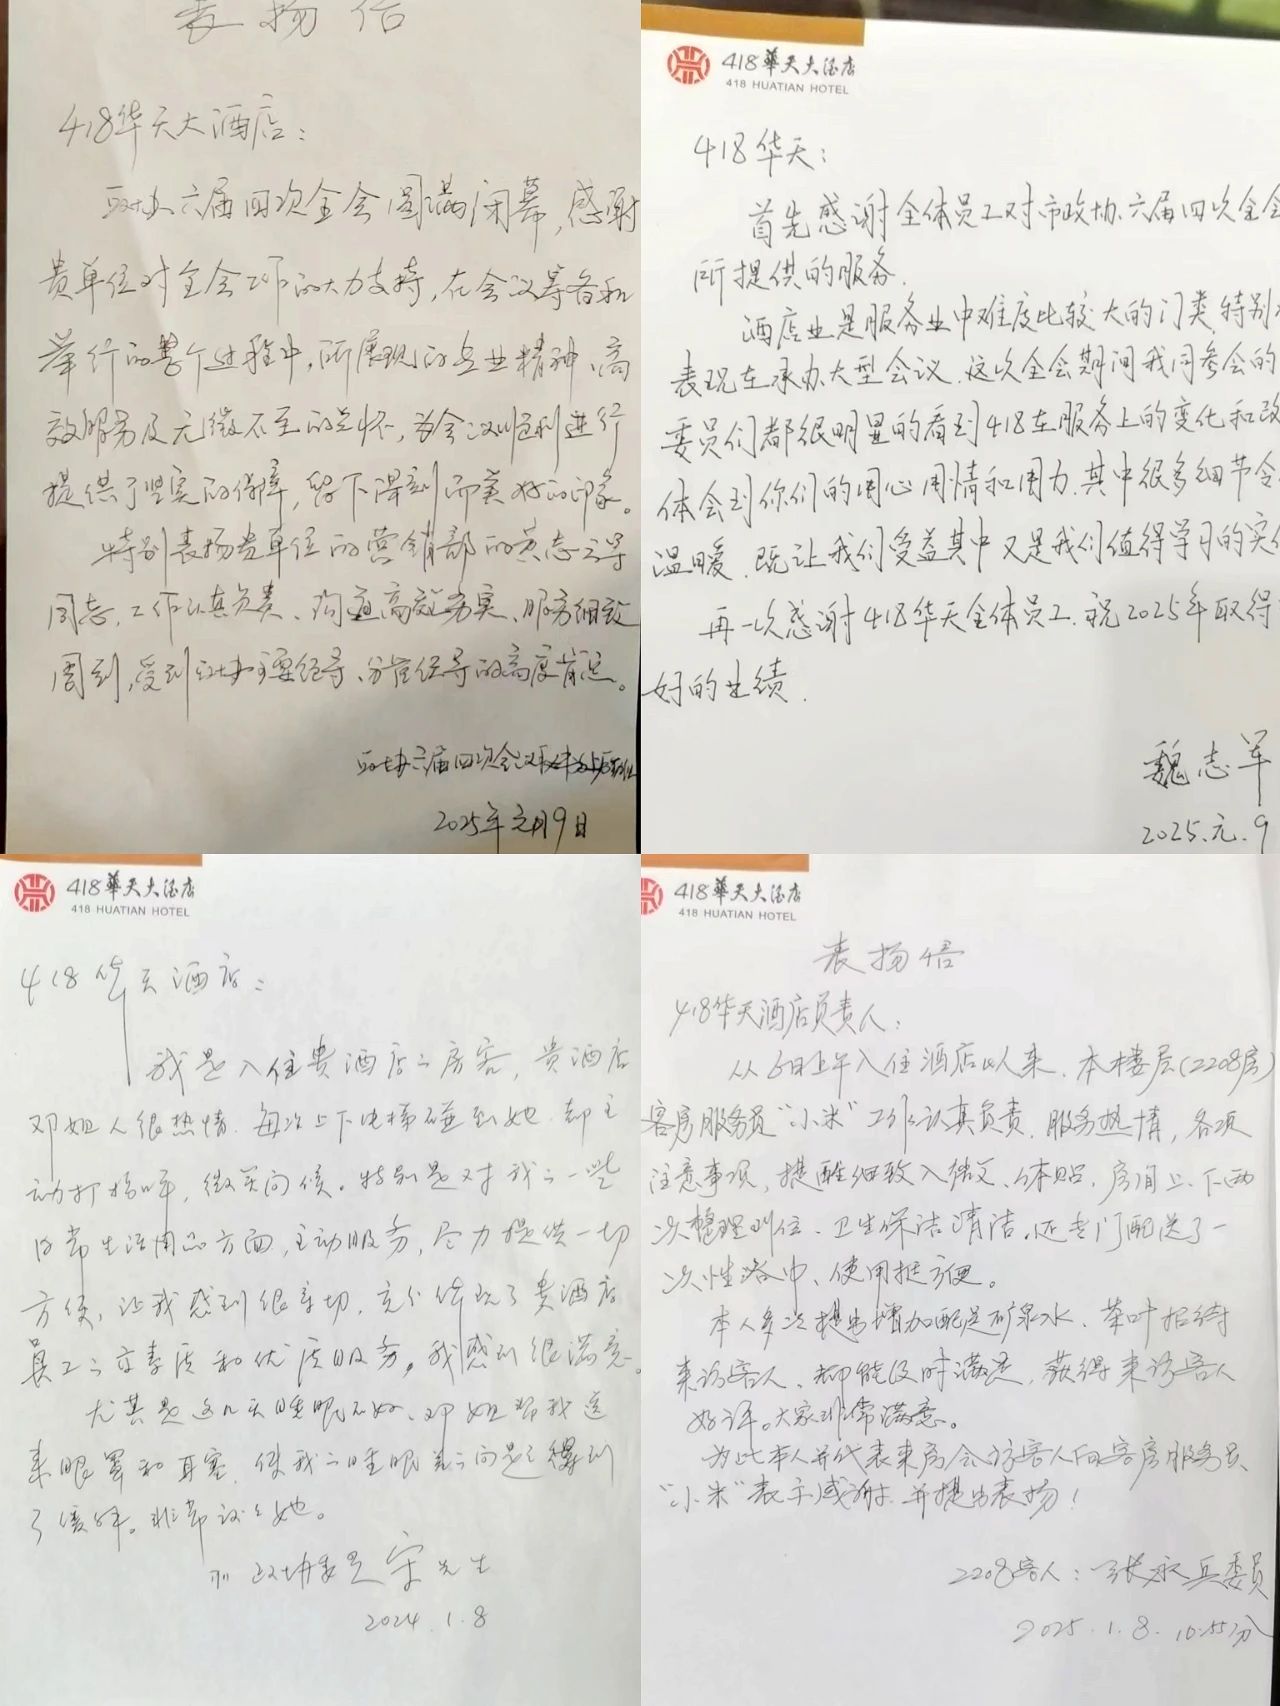 表扬信
418华天大酒店：
政协六届四次全会圆满闭幕，感谢
贵单位对全会工作的大力支持，在会议筹备和
举行的整个过程中，所展现的专业精神、高
效服务及无微不至的关怀，为会议顺利进行
提供了坚实的保障，留下深刻而美好的印象。
特别表扬贵单位的营销部的黄志云等
同志，工作认真负责、沟通高效务实、服务细致
周到，受到政协主要领导、分管领导的高度肯定。
政协六届四次会议
2025年元月9日
418華天大酒店
418 HUATIAN HOTEL
418华天：
首先感谢全体员工对市政协六届四次全会
所提供的服务.
酒店业是服务业中难度比较大的门类,特别
表现在承办大型会议.这次全会期间我同参会的
委员们都很明显的看到418在服务上的变化和改
体会到你们的用心用情和用力.其中很多细节令
温暖.既让我们受益其中又是我们值得学习的实
再一次感谢418华天全体员工.祝2025年取得
好的业绩.
魏志军
2025.元.9
418華天大酒店
418 HUATIAN HOTEL
418华天酒店：
我是入住贵酒店之房客，贵酒店
邓姐人很热情.每次上下电梯碰到她.都主
动打招呼，微笑问候。特别是对我之一些
日常生活用品方面，主动服务，尽力提供一切
方便，让我感到很亲切，充分体现了贵酒店
员工之高素质和优质服务。我感到很满意。
尤其是这几天睡眠不好、邓姐帮我送
来眼罩和耳塞，使我之睡眠差之问题得到
了缓解。非常谢谢她。
政协委员宋先生
2024.1.8
418華天大酒店
418 HUATIAN HOTEL
表扬信
418华天酒店负责人：
从6日上午入住酒店以来，本楼层(2208房)
客房服务员“小米”工作认真负责，服务热情，各项
注意事项，提醒细致入微、体贴，房间上、下两
次整理到位、卫生保洁清洁，还专门配送了一
次性浴巾、使用挺方便。
本人多次提出增加配送矿泉水、茶叶招待
来访客人、都能及时满足，获得来访客人
好评。大家非常满意。
为此本人并代表来房会访客人向客房服务员
“小米”表示感谢.并提出表扬！
2208客人：张永兵委员
2025.1.8.10:55分